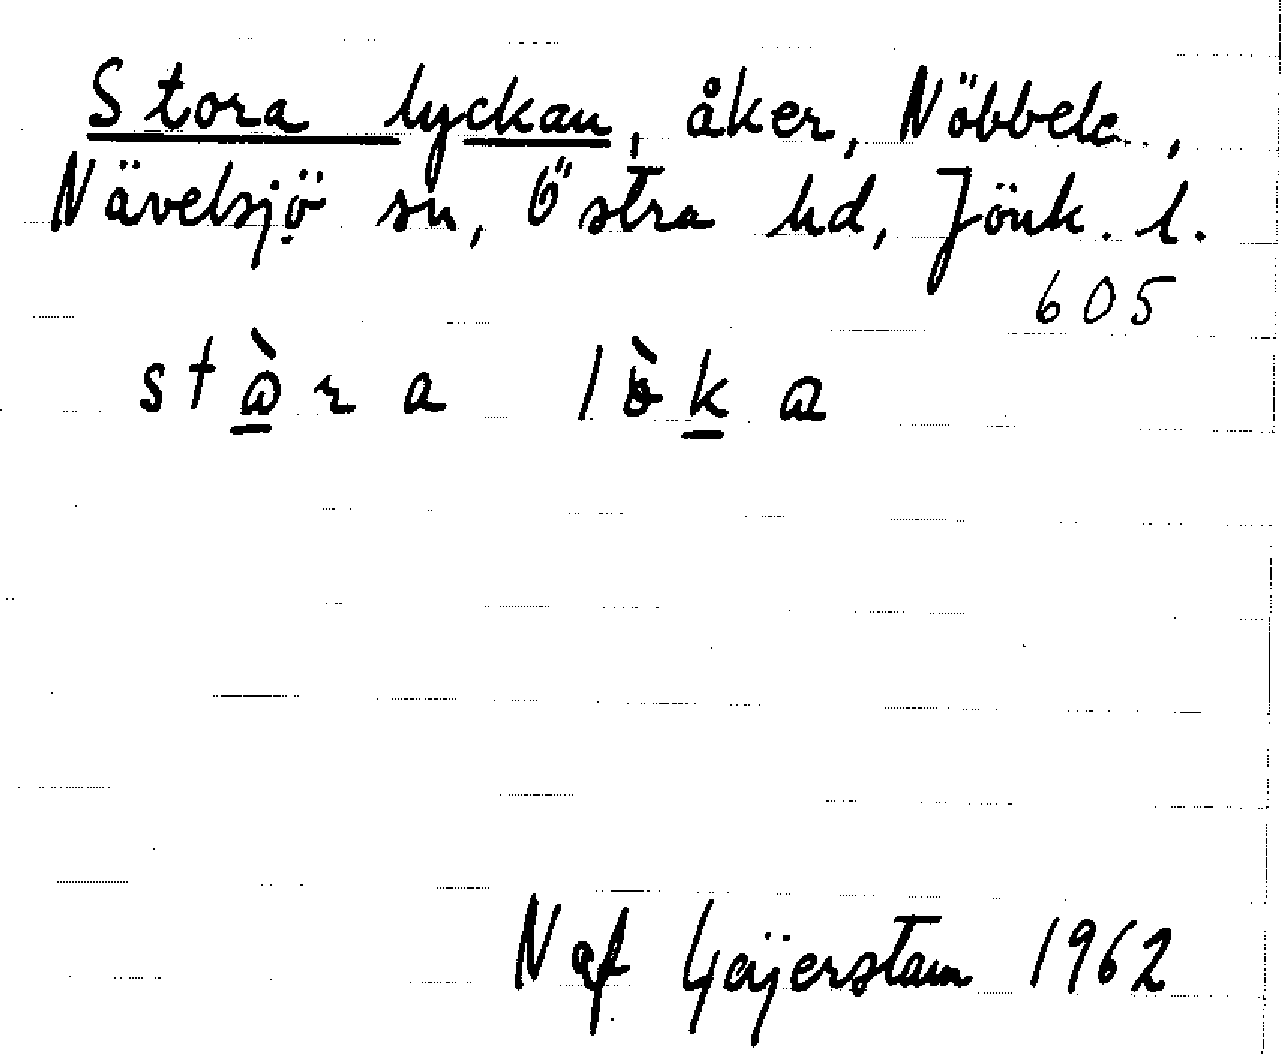 Stora lyckan, åker, Nöbbele,
Nävelsjö sn, Östra hd, Jönk. l.
605
N af Geijerstam 1962